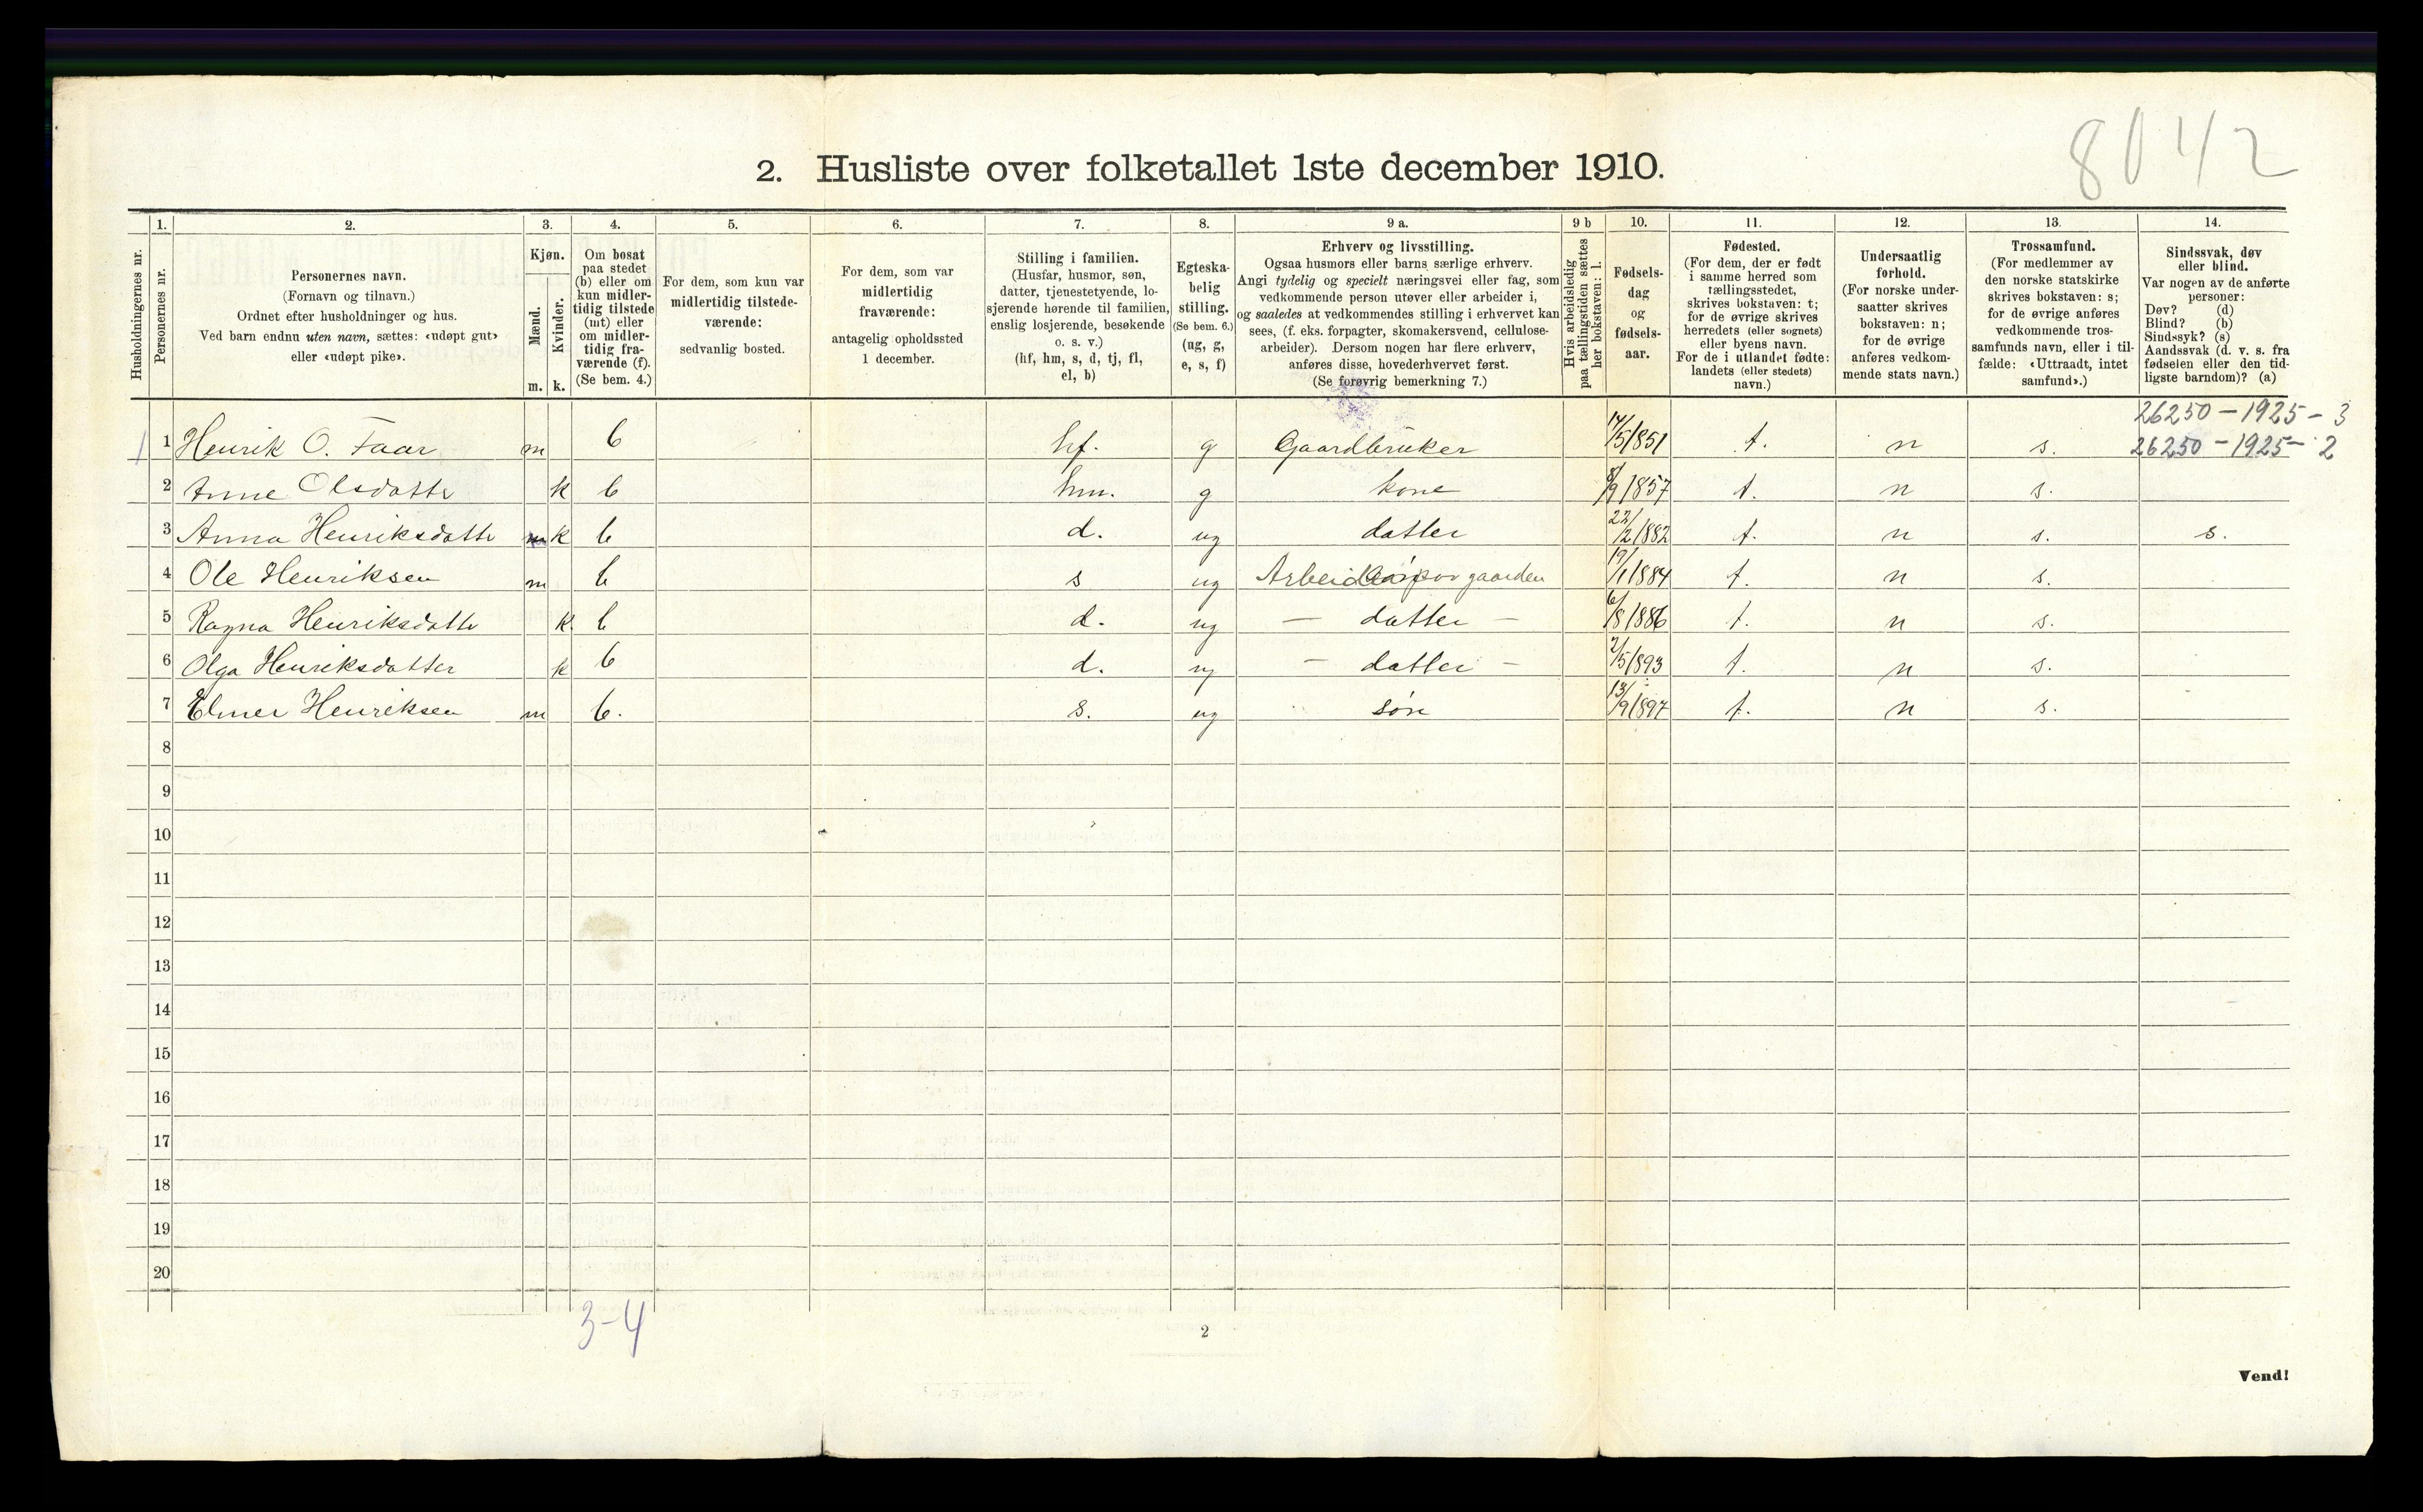 8042
2. Husliste over folketallet 1ste december 1910.
Husholdningernes nr.
1.
Personernes nr.
2.
Personernes navn.
(Fornavn og tilnavn.)
Ordnet efter husholdninger og hus.
Ved barn endnu uten navn, sættes: «udøpt gut»
eller «udøpt pike».
3.
Kjøn.
Mænd.
Kvinder.
m. k.
4.
Om bosat
paa stedet
(b) eller om
kun midler-
tidig tilstede
(mt) eller
om midler-
tidig fra-
værende (f).
(Se bem. 4.)
5.
For dem, som kun var
midlertidig tilstede-
værende:
sedvanlig bosted.
6.
For dem, som var
midlertidig
fraværende:
antagelig opholdssted
1 december.
7.
Stilling i familien.
(Husfar, husmor, søn,
datter, tjenestetyende, lo-
sjerende hørende til familien,
enslig losjerende, besøkende
o. s. v.)
(hf, hm, s, d, tj, fl,
el, b)
8.
Egteska-
belig
stilling.
(Se bem. 6.)
(ug, g,
e, s, f)
9 a.
Erhverv og livsstilling.
Ogsaa husmors eller barns særlige erhverv.
Angi tydelig og specielt næringsvei eller fag, som
vedkommende person utøver eller arbeider i,
og saaledes at vedkommendes stilling i erhvervet kan
sees, (f. eks. forpagter, skomakersvend, cellulose-
arbeider). Dersom nogen har flere erhverv,
anføres disse, hovederhvervet først.
(Se forøvrig bemerkning 7.)
9 b
Hvis arbeidsledig
paa tællingstiden sættes
her bokstaven: l.
10.
Fødsels-
dag
og
fødsels-
aar.
11.
Fødested.
(For dem, der er født
i samme herred som
tællingsstedet,
skrives bokstaven: t;
for de øvrige skrives
herredets (eller sognets)
eller byens navn.
For de i utlandet fødte:
landets (eller stedets)
navn.)
12.
Undersaatlig
forhold.
(For norske under-
saatter skrives
bokstaven: n;
for de øvrige
anføres vedkom-
mende stats navn.)
13.
Trossamfund.
(For medlemmer av
den norske statskirke
skrives bokstaven: s;
for de øvrige anføres
vedkommende tros-
samfunds navn, eller i til-
fælde: «Uttraadt, intet
samfund».)
14.
Sindssvak, døv
eller blind.
Var nogen av de anførte
personer:
Døv? (d)
Blind? (b)
Sindssyk? (s)
Aandssvak (d. v. s. fra
fødselen eller den tid-
ligste barndom)? (a)
26250 - 1925 - 3
1 1 Henrik O. Faar m b hf. g Gaardbruker 14/5 1851 t. n s. 26250 - 1925 - 2
2 Anne Olsdatter k b hm. g kone 8/9 1857 t. n s.
3 Anna Henriksdatter m k b d. ug datter 22/2 1882 t. n s. s.
4 Ole Henriksen m b s ug Arbeider paa gaarden 19/1 1884 t. n s.
5 Ragna Henriksdatter k. b d. ug - datter - 6/8 1886 t. n s.
6 Olga Henriksdatter k b d. ug - datter - 2/5 1893 t. n s.
7 Elmer Henriksen m b. s. ug søn 13/9 1897 t. n s.
8
9
10
11
12
13
14
15
16
17
18
19
20
3-4
2
Vend!